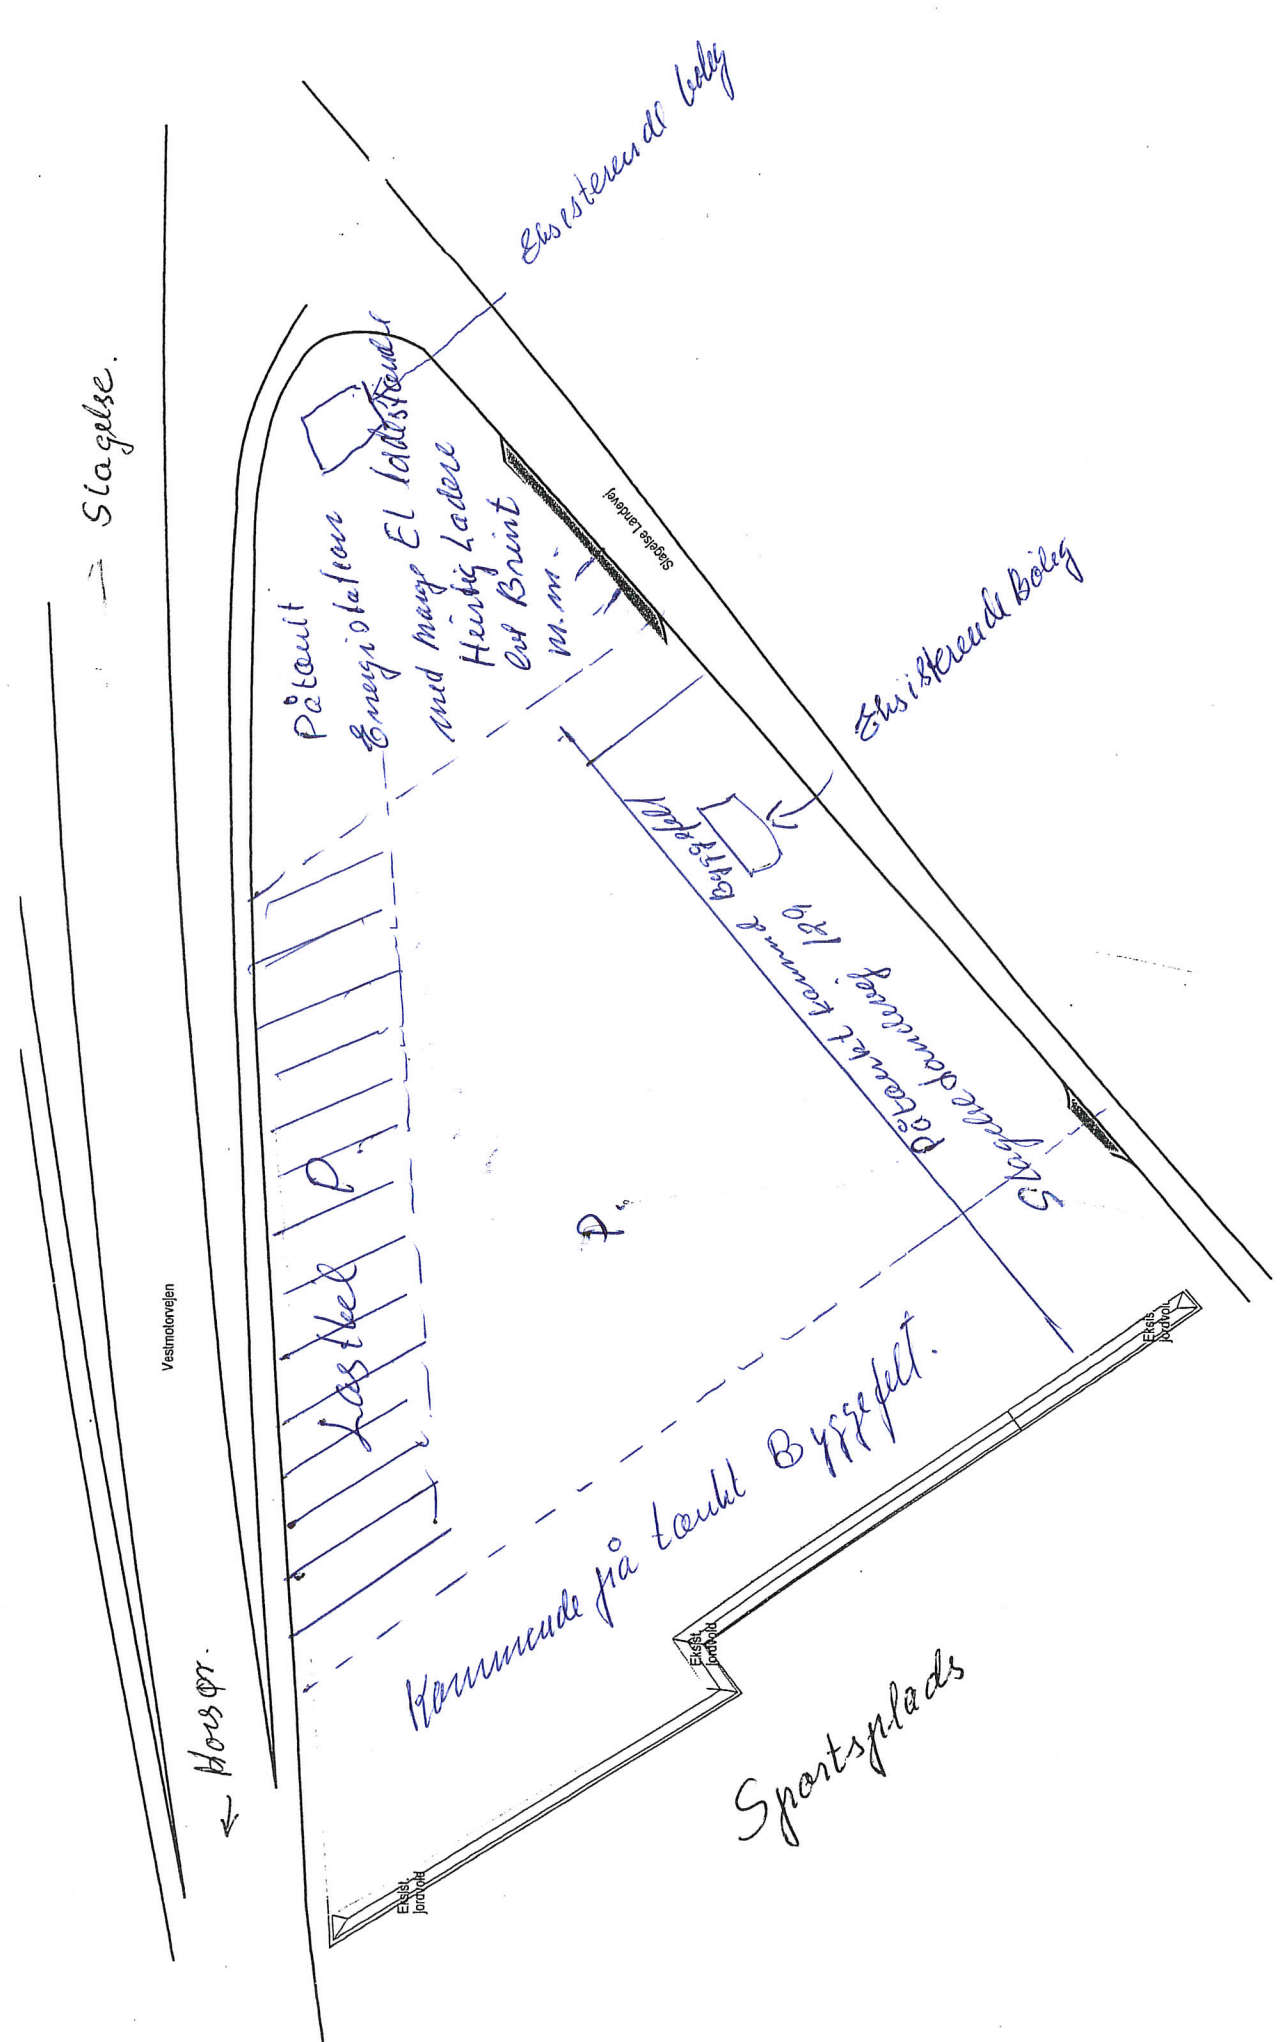 → Slagelse.
Vestmotorvejen
← Korsør.
Eksisterende bolig
Påtænkt
Energistation
med mange El ladestandere
Hurtig Ladere
evt Brint
m.m.
Slagelse Landevej
Eksisterende Bolig
Lastbil P.
P.
Påtænkt kommende byggefelt
Slagelse Landevej 129
Kommende på tænkt Byggefelt.
Eksist.
jordvold
Eksist.
jordvold
Eksist.
jordvold
Sportsplads